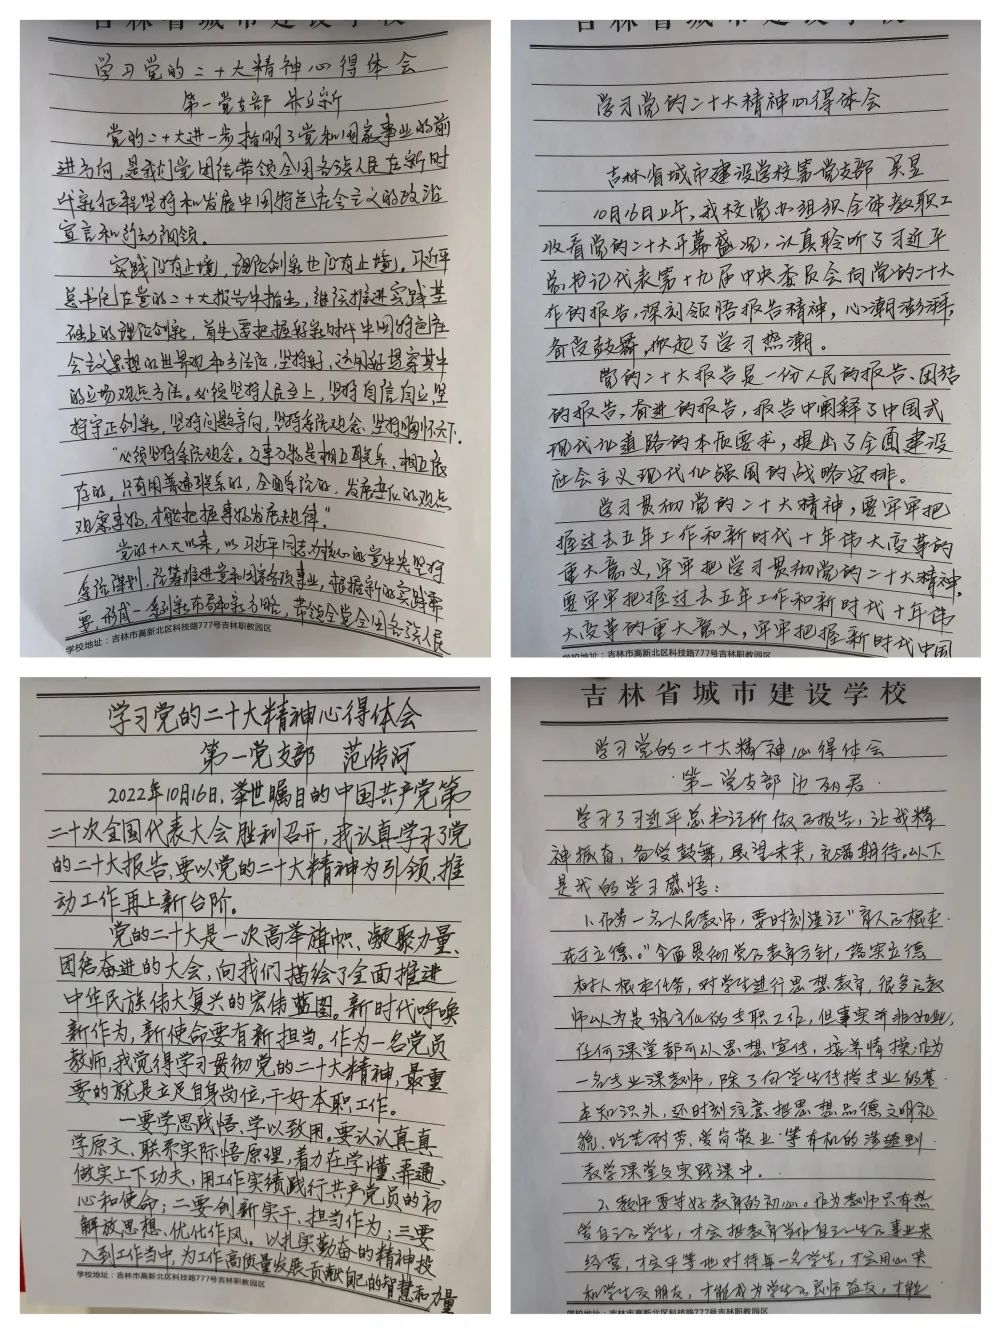 吉林省城市建设学校
学习党的二十大精神心得体会
第一党支部 朱立新
党的二十大进一步指明了党和国家事业的前
进方向,是我们党团结带领全国各族人民在新时
代新征程坚持和发展中国特色社会主义的政治
宣言和行动纲领。
实践没有止境,理论创新也没有止境。习近平
总书记在党的二十大报告中指出,继续推进实践基
础上的理论创新,首先要把握好新时代中国特色社
会主义思想的世界观和方法论,坚持好、运用好贯穿其中
的立场观点方法。必须坚持人民至上,坚持自信自立,坚
持守正创新,坚持问题导向,坚持系统观念,坚持胸怀天下。
"必须坚持系统观念。万事万物是相互联系、相互依
存的。只有用普遍联系的,全面系统的,发展变化的观点
观察事物,才能把握事物发展规律。"
党的十八大以来,以习近平同志为核心的党中央坚持
系统谋划,统筹推进党和国家各项事业,根据新的实践需
要,形成一系列新布局和新方略,带领全党全国各族人民
学校地址:吉林市高新北区科技路777号吉林职教园区
吉林省城市建设学校
学习党的二十大精神心得体会
吉林省城市建设学校第一党支部 吴昱
10月16日上午,我校党办组织全体教职工
收看党的二十大开幕盛况,认真聆听了习近平
总书记代表第十九届中央委员会向党的二十大
作的报告,深刻领悟报告精神,心潮澎湃,
备受鼓舞,掀起了学习热潮。
党的二十大报告是一份人民的报告、团结
的报告、奋进的报告,报告中阐释了中国式
现代化道路的本质要求,提出了全面建设
社会主义现代化强国的战略安排。
学习贯彻党的二十大精神,要牢牢把
握过去五年工作和新时代十年伟大变革的
重大意义,牢牢把学习贯彻党的二十大精神,
要牢牢把握过去五年工作和新时代十年伟
大变革的重大意义,牢牢把握新时代中国
学校地址:吉林市高新北区科技路777号吉林职教园区
学习党的二十大精神心得体会
第一党支部 范传河
2022年10月16日,举世瞩目的中国共产党第
二十次全国代表大会胜利召开,我认真学习了党
的二十大报告,要以党的二十大精神为引领,推
动工作再上新台阶。
党的二十大是一次高举旗帜、凝聚力量、
团结奋进的大会,向我们描绘了全面推进
中华民族伟大复兴的宏伟蓝图。新时代呼唤
新作为,新使命要有新担当。作为一名党员
教师,我觉得学习贯彻党的二十大精神,最重
要的就是立足自身岗位,干好本职工作。
一要学思践悟、学以致用。要认认真真
学原文、联系实际悟原理,着力在学懂、弄通、
做实上下功夫,用工作实绩践行共产党员的初
心和使命;二要创新实干、担当作为、三要
解放思想、优化作风。以扎实勤奋的精神投
入到工作当中,为工作高质量发展贡献自己的智慧和力量
学校地址:吉林市高新北区科技路777号吉林职教园区
吉林省城市建设学校
学习党的二十大精神心得体会
第一党支部 丽君
学习了习近平总书记所做的报告,让我精
神振奋,备受鼓舞,展望未来,充满期待。以下
是我的学习感悟:
1.作为一名人民教师,要时刻谨记"育人的根本
在于立德。"全面贯彻党的教育方针,落实立德
树人根本任务,对学生进行思想教育,很多教
师以为是班主任的专职工作,但事实并非如此,
任何课堂都可以思想宣传,培养情操,作为
一名专业课教师,除了向学生传授专业的基
本知识外,还时刻注意把思想品德文明礼
貌、吃苦耐劳、爱岗敬业等有机的渗透到
教学课堂与实践课中。
2.教师要守好教育的初心。作为教师只有热
爱自己的学生,才会把教育当作自己一生的事业来
经营,才会平等地对待每一名学生,才会用心来
和学生交朋友,才能成为学生的良师益友,才能
学校地址:吉林市高新北区科技路777号吉林职教园区